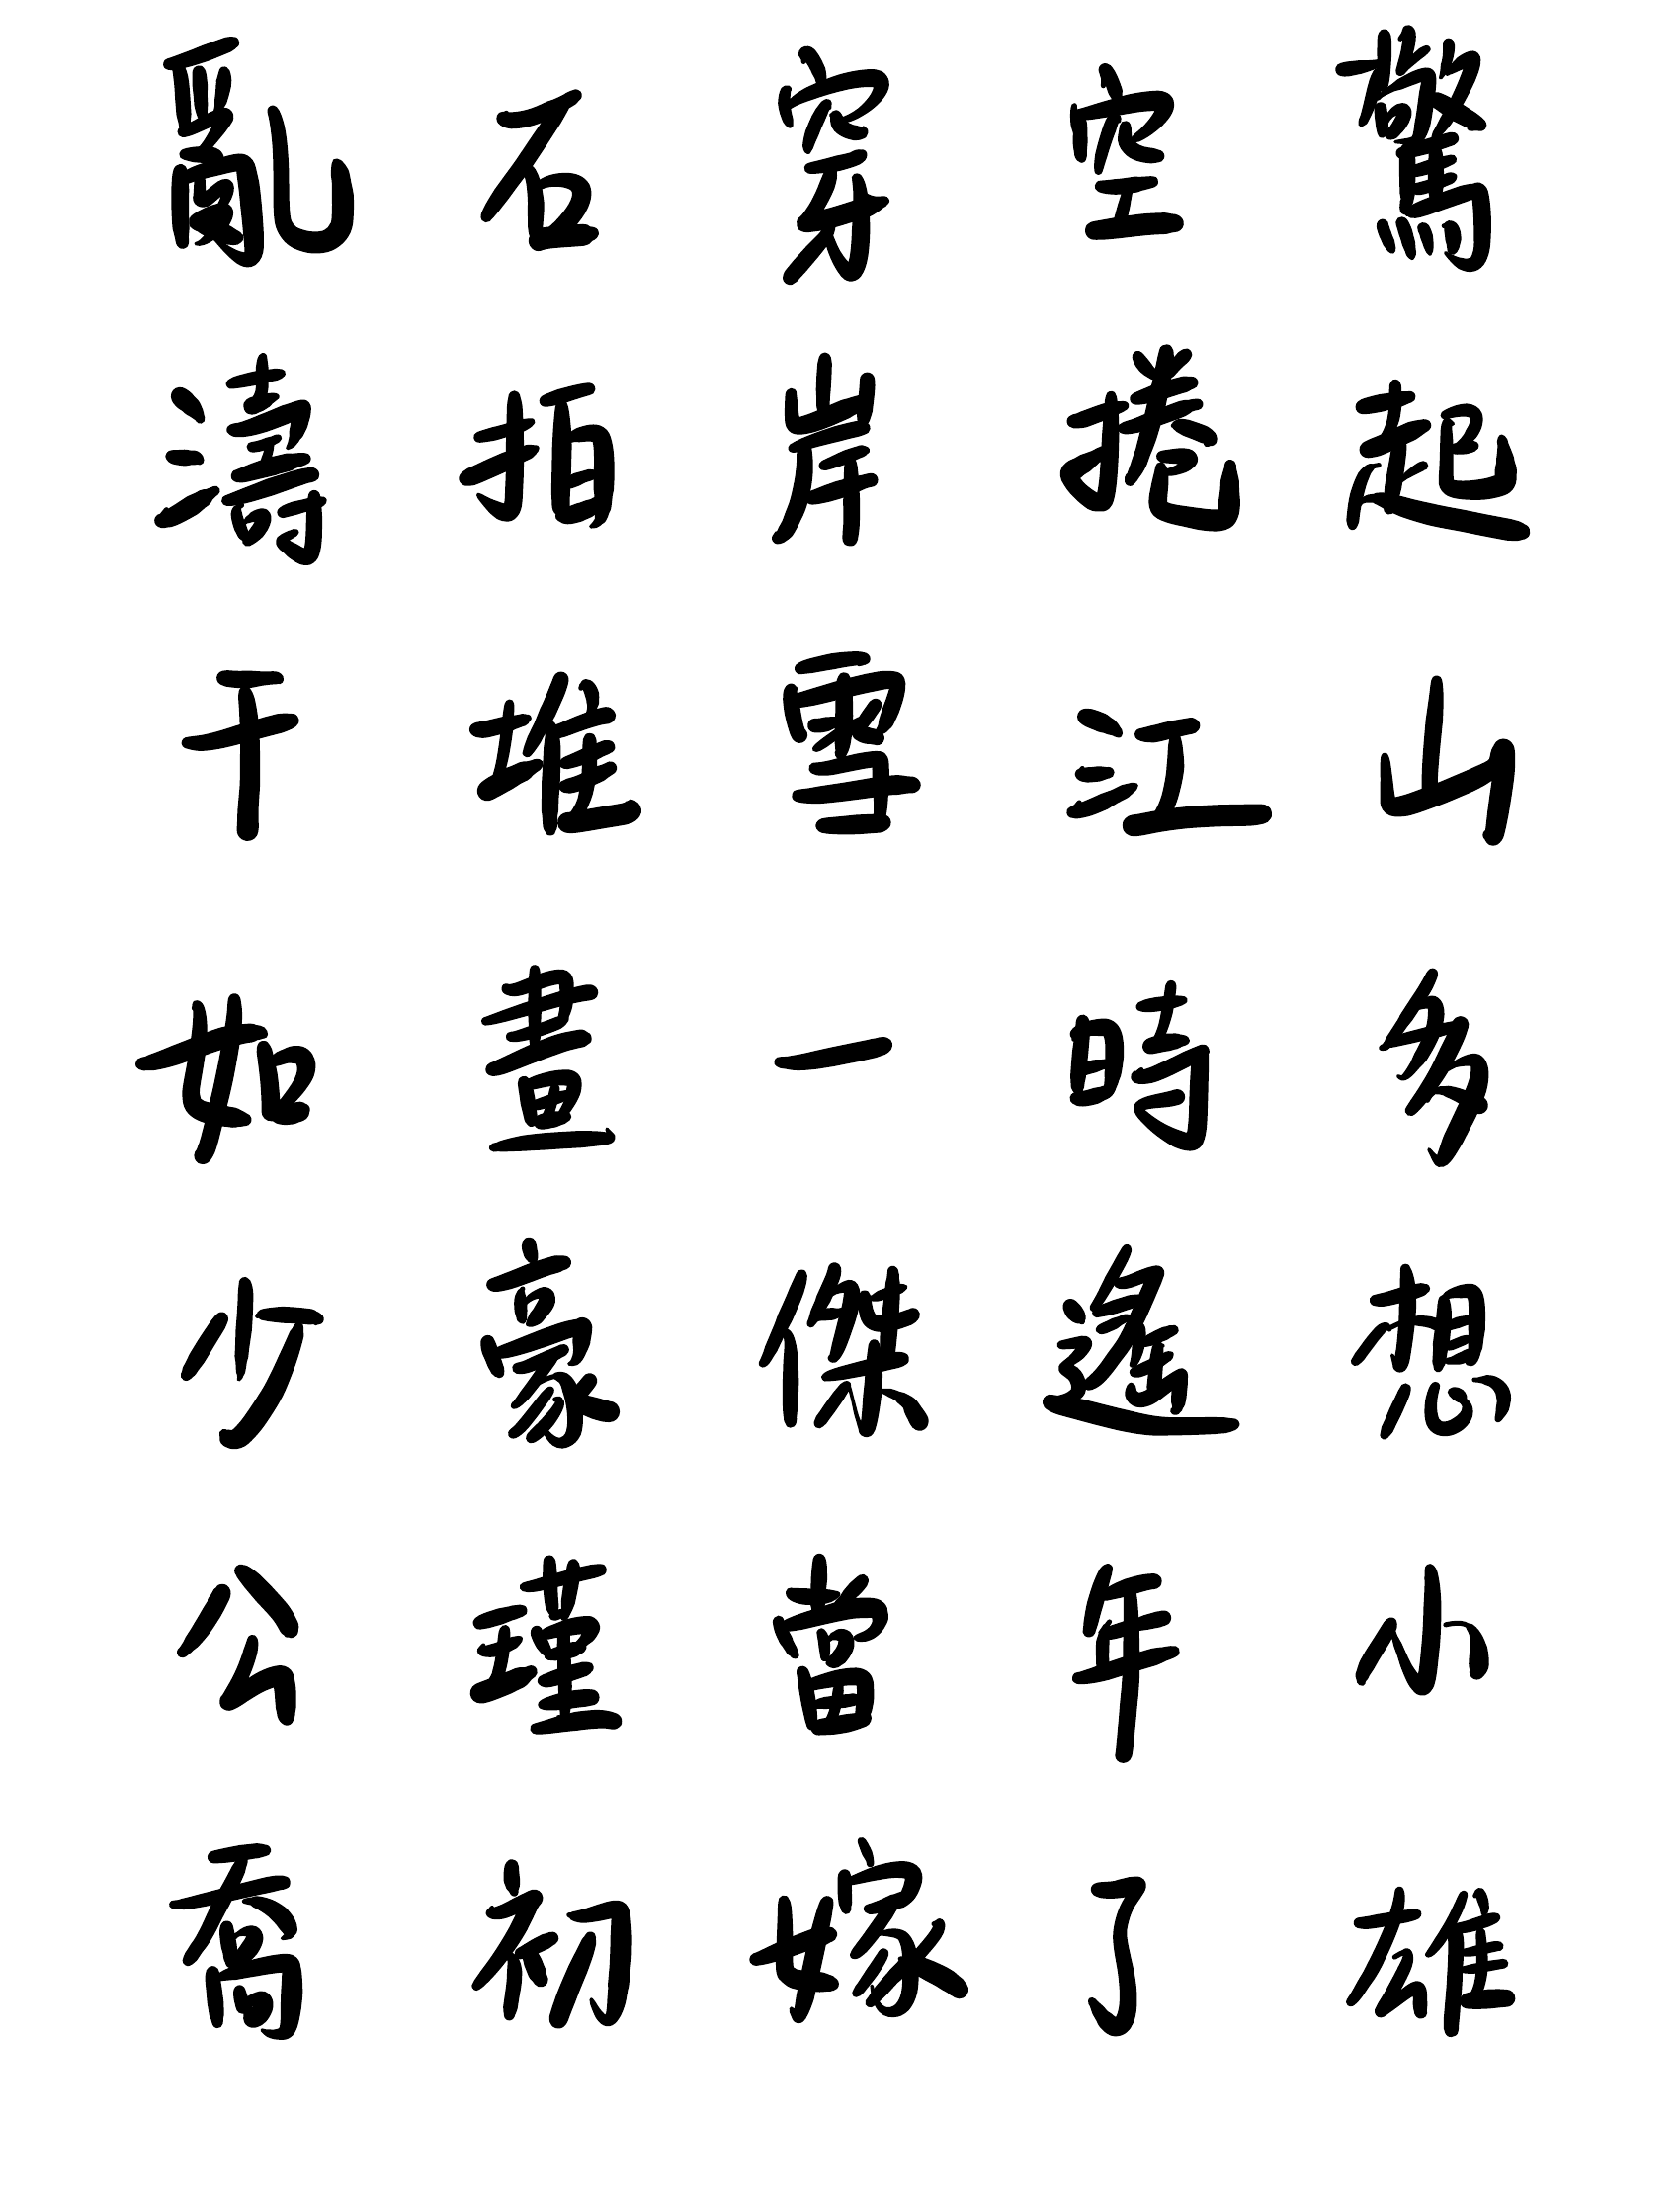 亂石穿空驚
濤拍岸捲起
干堆雪江山
如畫一時多
少豪傑遙想
公瑾當年小
喬初嫁了雄